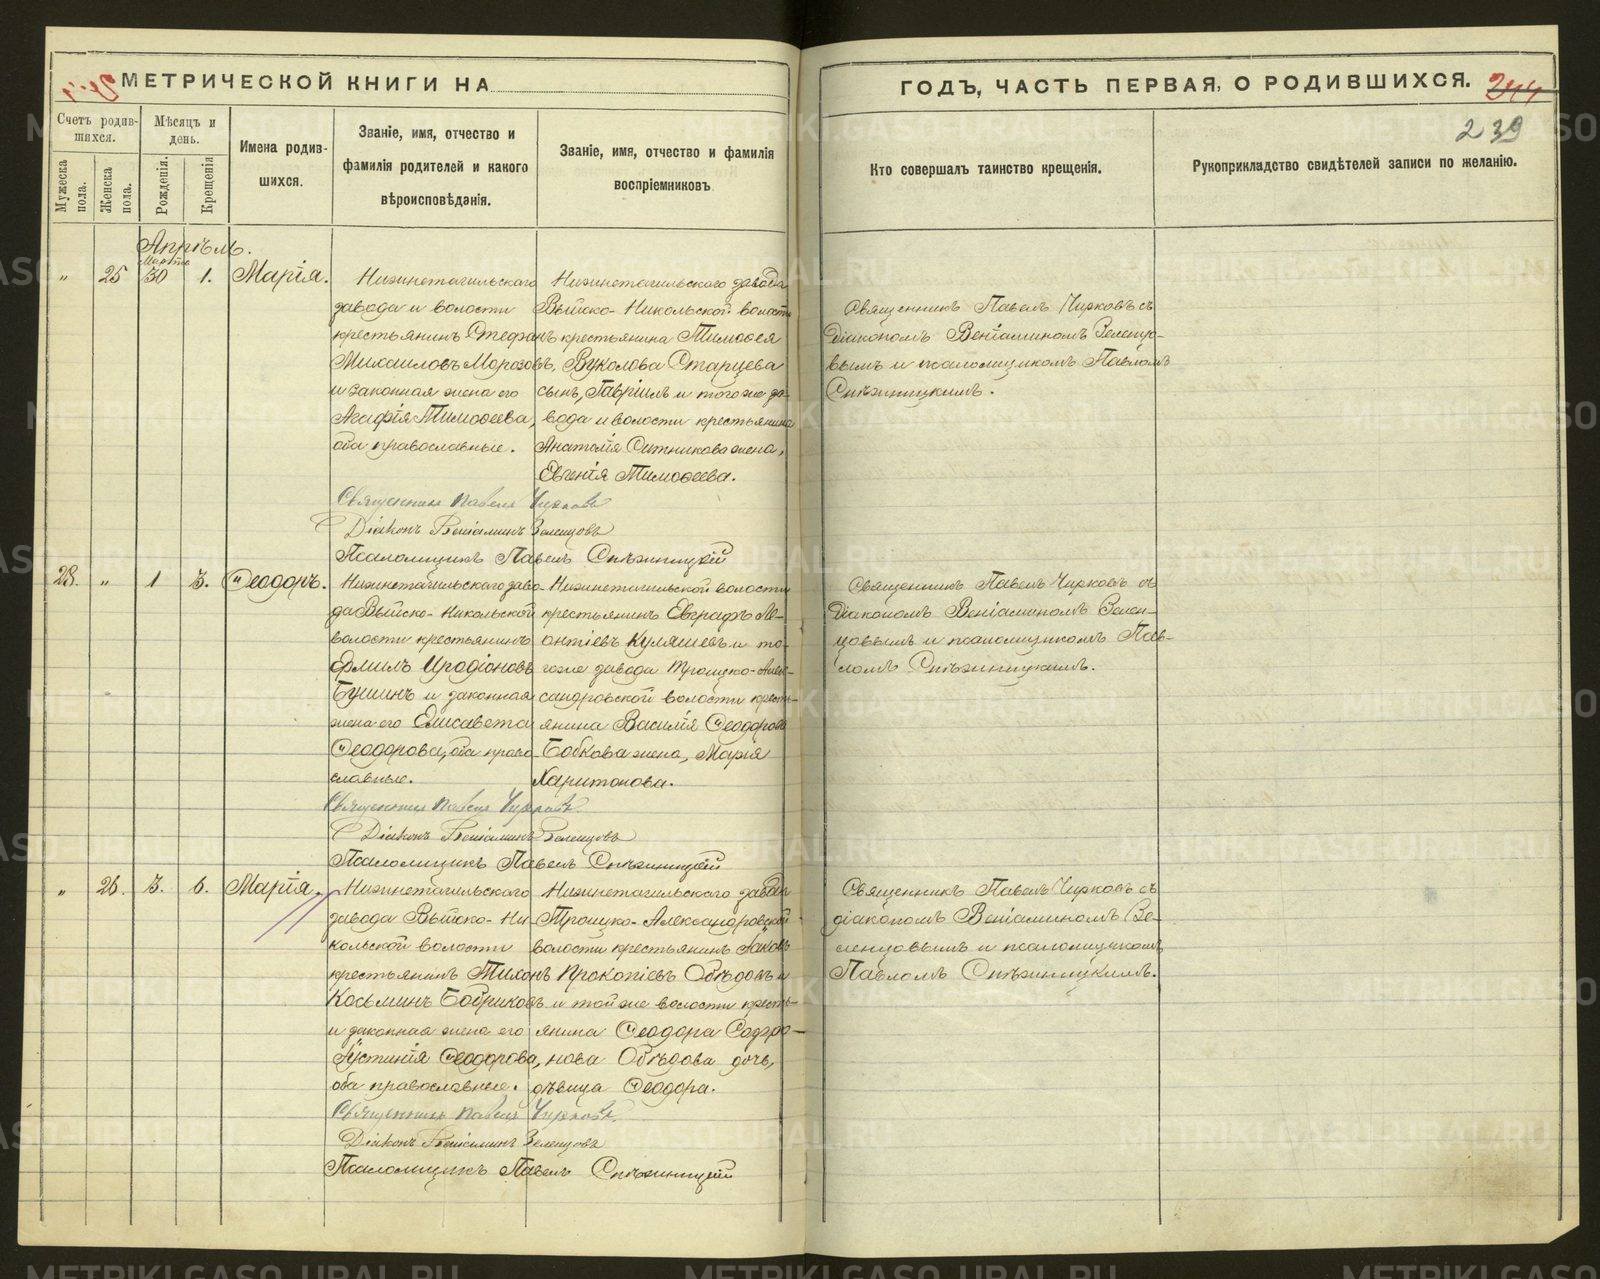 МЕТРИЧЕСКОЙ КНИГИ НА
ГОДЪ, ЧАСТЬ ПЕРВАЯ, О РОДИВШИХСЯ.
244
239
Счетъ родив-
шихся.
Мужеска пола.
Женска пола.
Мѣсяцъ и
день.
Рожденія.
Крещенія
Имена родив-
шихся.
Званіе, имя, отчество и
фамилія родителей и какого
вѣроисповѣданія.
Званіе, имя, отчество и фамилія
воспріемниковъ
Кто совершалъ таинство крещенія.
Рукоприкладство свидѣтелей записи по желанію.
Апрѣль.
Марта
„ 25 30 1. Марія.
Нижнетагильскаго
завода и волости
крестьянинъ Стефанъ
Михаиловъ Морозовъ,
и законная жена его
Агафія Тимоѳеева,
оба православные.
Нижнетагильскаго завода
Выйско-Никольской волости
крестьянина Тимоѳея
Вуколова Старцева
сынъ, Гавріилъ и того же за-
вода и волости крестьянина
Анатолія Ситникова жена,
Евгенія Тимоѳеева.
Священникъ Павелъ Чирковъ съ
діакономъ Веніаминомъ Зеленцо-
вымъ и псаломщикомъ Павломъ
Снѣжницкимъ.
Священникъ Павелъ Чирковъ
Діаконъ Веніаминъ Зеленцовъ
Псаломщикъ Павелъ Снѣжницкій
28. „ 1 3. Ѳеодоръ.
Нижнетагильскаго заво-
да Выйско-Никольской
волости крестьянинъ
Филипъ Иродіоновъ
Бушинъ и законная
жена его Елисавета
Ѳеодорова, оба право-
славные.
Нижнетагильской волости
крестьянинъ Евграфъ Ле-
онтіевъ Куляшевъ и то-
гоже завода Троицко-Алек-
сандровской волости кресть-
янина Василія Ѳеодорова
Бобкова жена, Марія
Харитонова.
Священникъ Павелъ Чирковъ съ
діакономъ Веніаминомъ Зелен-
цовымъ и псаломщикомъ Пав-
ломъ Снѣжницкимъ.
Священникъ Павелъ Чирковъ
Діаконъ Веніаминъ Зеленцовъ
Псаломщикъ Павелъ Снѣжницкій
„ 26. 3. 6. Марія.
Нижнетагильскаго
завода Выйско-Ни-
кольской волости
крестьянинъ Тихонъ
Косьминъ Бобриковъ
и законная жена его
Іустинія Ѳеодорова,
оба православные.
Нижнетагильскаго завода
Троицко-Александровской
волости крестьянинъ Іаковъ
Прокопіевъ Обѣдовъ и
и той же волости кресть-
янина Ѳеодора Софро-
нова Обѣдова дочь,
дѣвица Ѳеодора.
Священникъ Павелъ Чирковъ съ
діакономъ Веніаминомъ Зе-
ленцовымъ и псаломщикомъ
Павломъ Снѣжницкимъ.
Священникъ Павелъ Чирковъ
Діаконъ Веніаминъ Зеленцовъ
Псаломщикъ Павелъ Снѣжницкій
METRIKI.GASO-URAL.RU